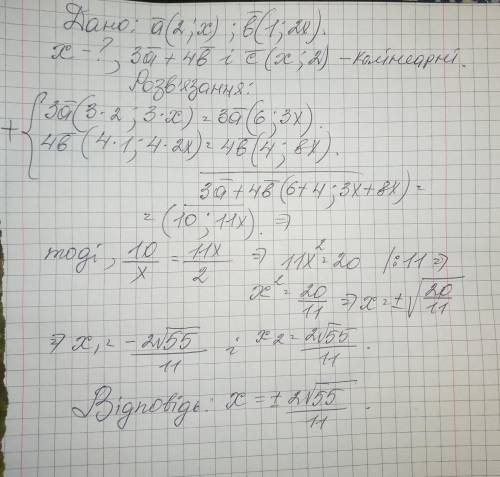 Дано: a̅(2; x); b̅(1; 2x).
x - ?, 3a̅ + 4b̅ і c̅(x; 2) - колінеарні.
Розв'язання:
+ { 3a̅(3·2; 3·x) = 3a̅(6; 3x).
4b̅(4·1; 4·2x) = 4b̅(4; 8x).
3a̅ + 4b̅(6+4; 3x+8x) =
= (10; 11x). ⇒
тоді, 10/x = 11x/2 ⇒ 11x² = 20 |:11 ⇒
x² = 20/11 ⇒ x = ±√(20/11)
⇒ x₁ = -2√55/11 і x₂ = 2√55/11.
Відповідь: x = ± 2√55/11.